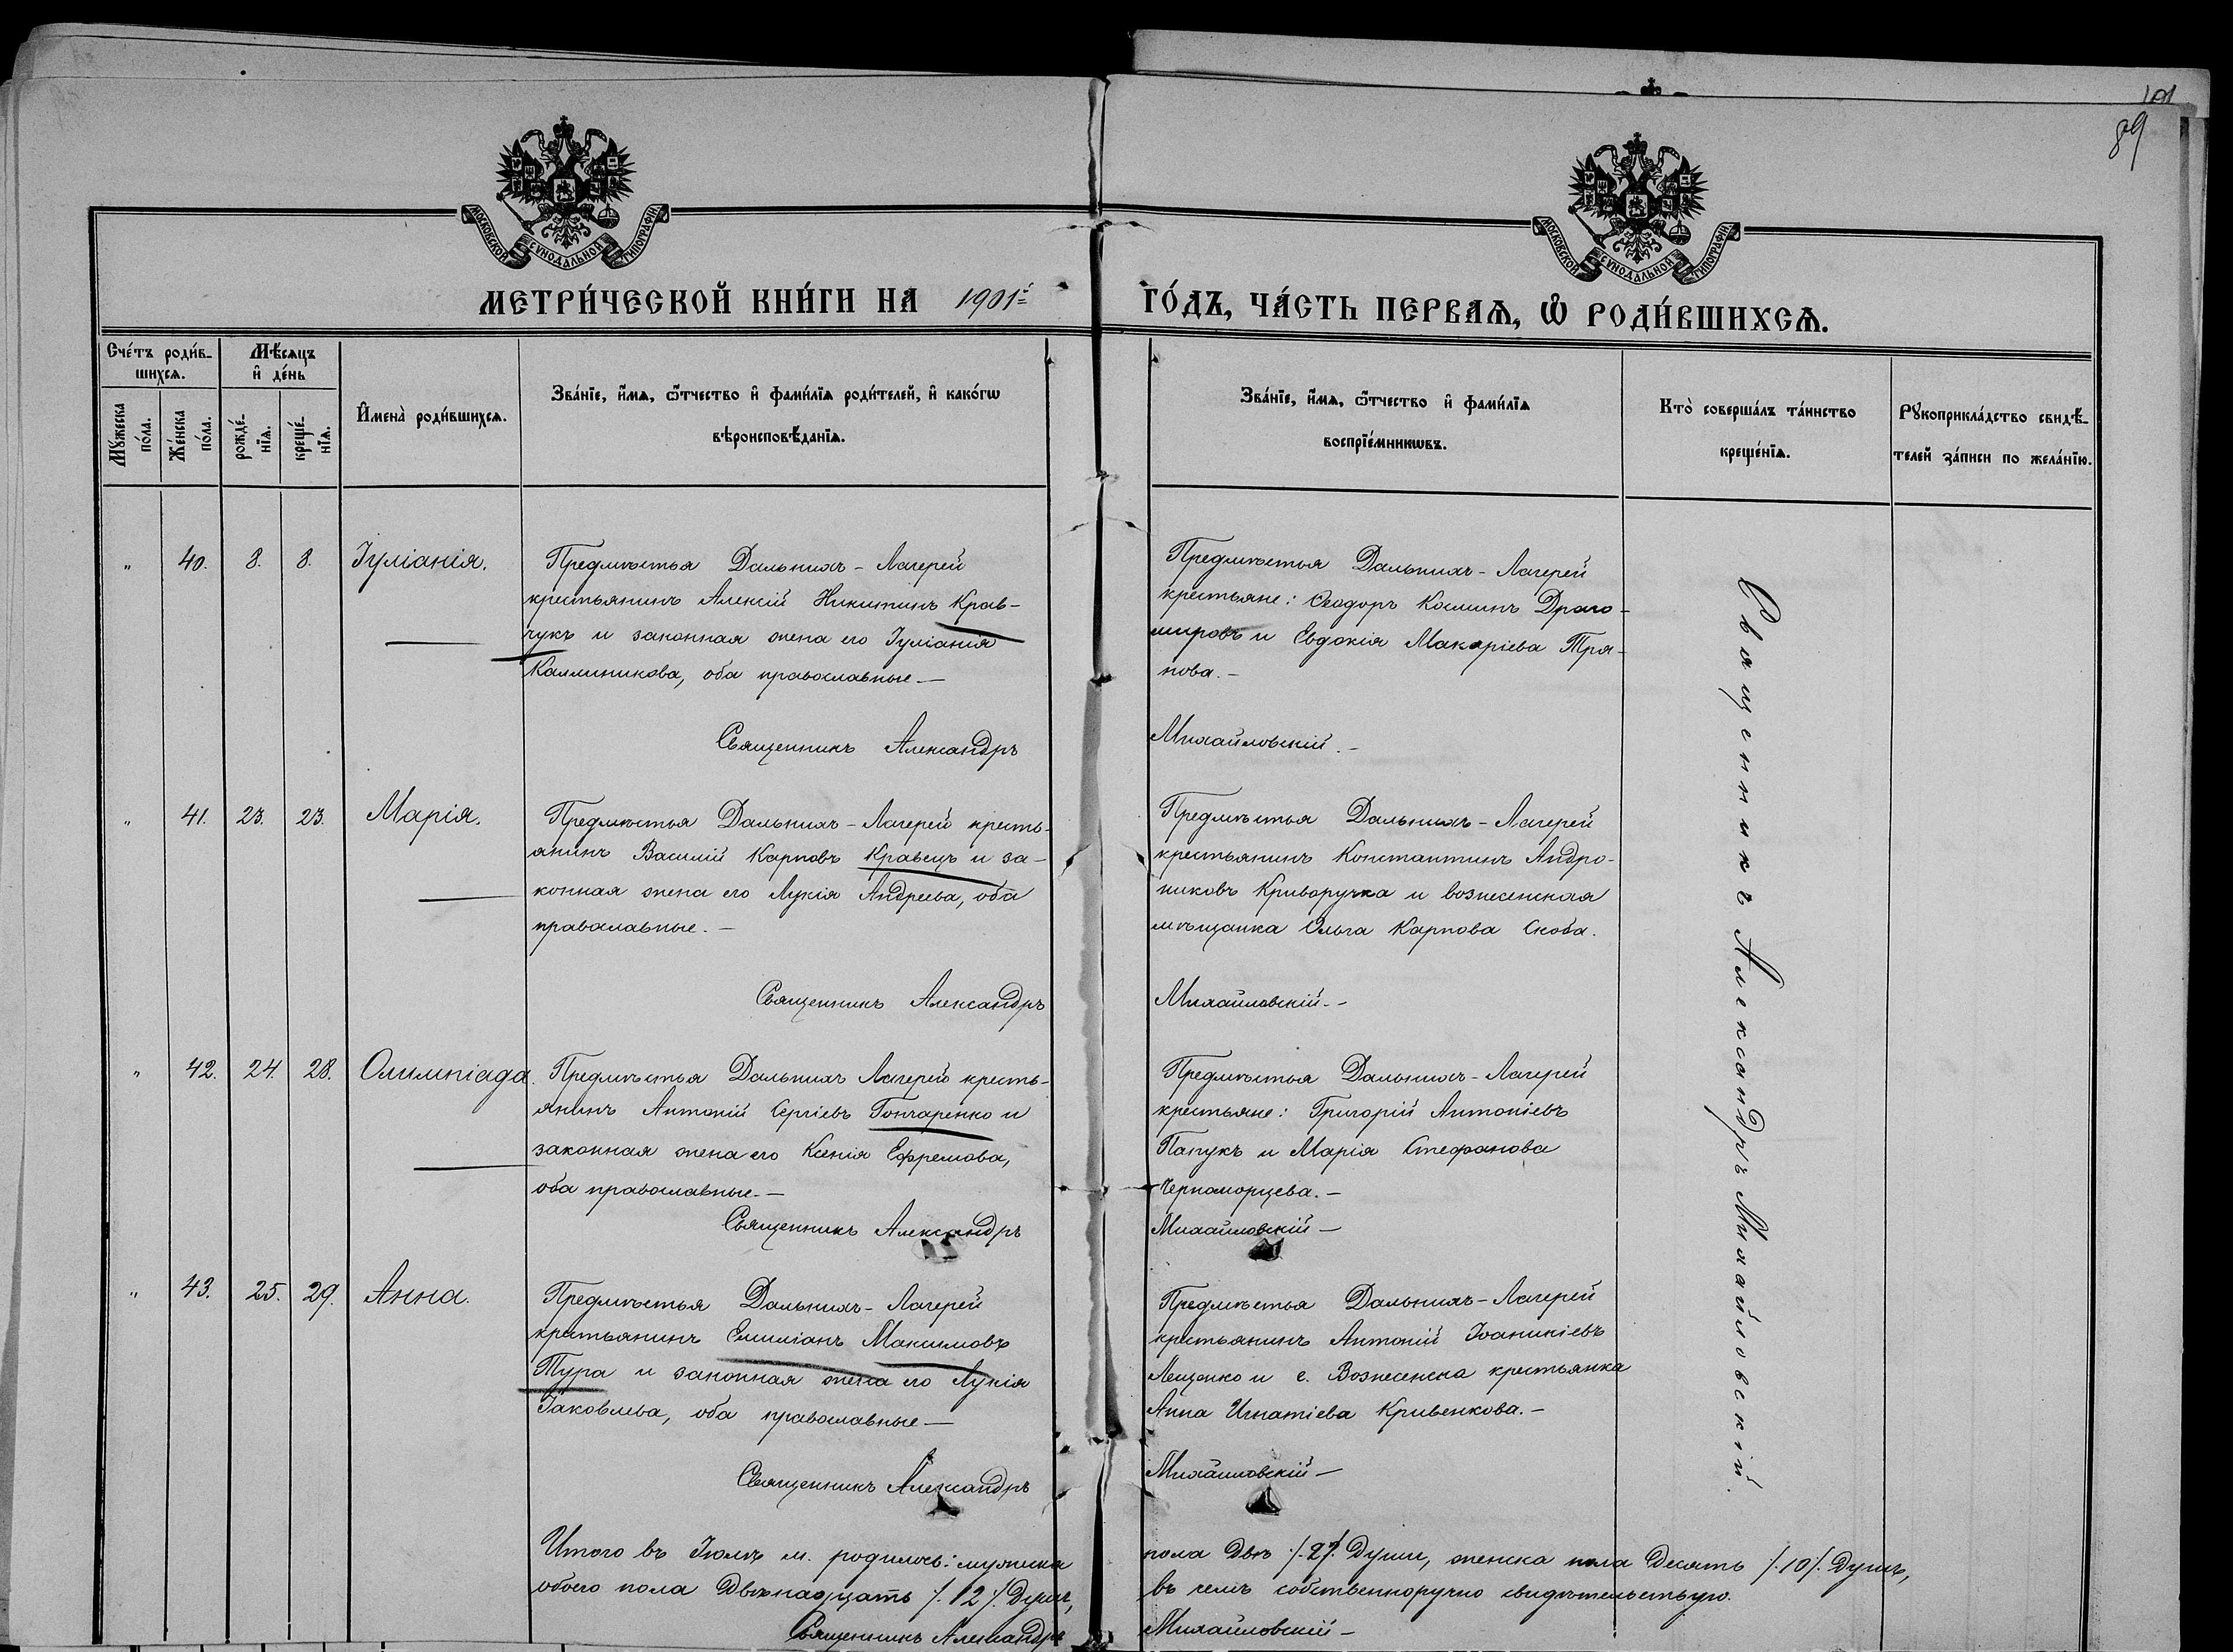 101
89
МОСКОВСКОЙ СѴНОДАЛЬНОЙ ТИПОГРАФІИ
МОСКОВСКОЙ СѴНОДАЛЬНОЙ ТИПОГРАФІИ
МЕТРИ́ЧЕСКОЙ КНИ́ГИ НА 1901й ГО́ДЪ, ЧА́СТЬ ПЕРВАѦ, Ѡ҆ РОДИ́ВШИХСѦ.
Сче́тъ роди́в-
шихсѧ.
Мѣ́сѧцъ
и҆ де́нь
Мꙋ́жеска
по́ла.
Же́нска
по́ла.
рожде́-
нїѧ.
креще́-
нїѧ.
И҆мена̀ роди́вшихсѧ.
Зва́нїе, и҆́мѧ, ѻ҆́тчество и҆ фами́лїѧ роди́телей, и҆ како́гѡ
вѣроисповѣ́данїѧ.
Зва́нїе, и҆́мѧ, ѻ҆́тчество и҆ фами́лїѧ
воспрїе́мникѡвъ.
Кто̀ соверша́лъ та́инство
креще́нїѧ.
Рꙋкоприкла́дство свидѣ́-
телей за́писи по жела́нїю.
" 40. 8. 8. Іуліанія.
Предмѣстья Дальнихъ-Лагерей
крестьянинъ Алексій Никитинъ Крав-
чукъ и законная жена его Іуліанія
Каллиникова, оба православные —
Священникъ Александръ
Предмѣстья Дальнихъ-Лагерей
крестьяне: Ѳеодоръ Косминъ Драго-
мировъ и Евдокія Макаріева Тря-
пова. —
Михайловскій. —
" 41. 23. 23. Марія.
Предмѣстья Дальнихъ-Лагерей кресть-
янинъ Василій Карповъ Кравецъ и за-
конная жена его Лукія Андреева, оба
православные. —
Священникъ Александръ
Предмѣстья Дальнихъ-Лагерей
крестьянинъ Константинъ Андро-
никовъ Криворучка и вознесенская
мѣщанка Ольга Карпова Скоба.
Михайловскій. —
" 42. 24. 28. Олимпіада.
Предмѣстья Дальнихъ Лагерей кресть-
янинъ Антоній Сергіевъ Гончаренко и
законная жена его Ксенія Ефремова,
оба православные. —
Священникъ Александръ
Предмѣстья Дальнихъ-Лагерей
крестьяне: Григорій Антоніевъ
Папукъ и Марія Стефанова
Черноморцева. —
Михайловскій —
" 43. 25. 29. Анна.
Предмѣстья Дальнихъ-Лагерей
крестьянинъ Емиліанъ Максимовъ
Тура и законная жена его Лукія
Іаковлева, оба православные —
Священникъ Александръ
Предмѣстья Дальнихъ-Лагерей
крестьянинъ Антоній Іоанникіевъ
Лещенко и с. Вознесенска крестьянка
Анна Игнатіева Кривенкова. —
Михайловскій —
Священникъ Александръ Михайловскій.
Итого въ Іюлѣ м. родилось: мужска пола Двѣ /.2/. Души, женска пола Десять /.10/. Душъ,
обоего пола Двѣнадцать /.12/. Душъ, въ чемъ собственноручно свидѣтельствую.
Священникъ Александръ Михайловскій —